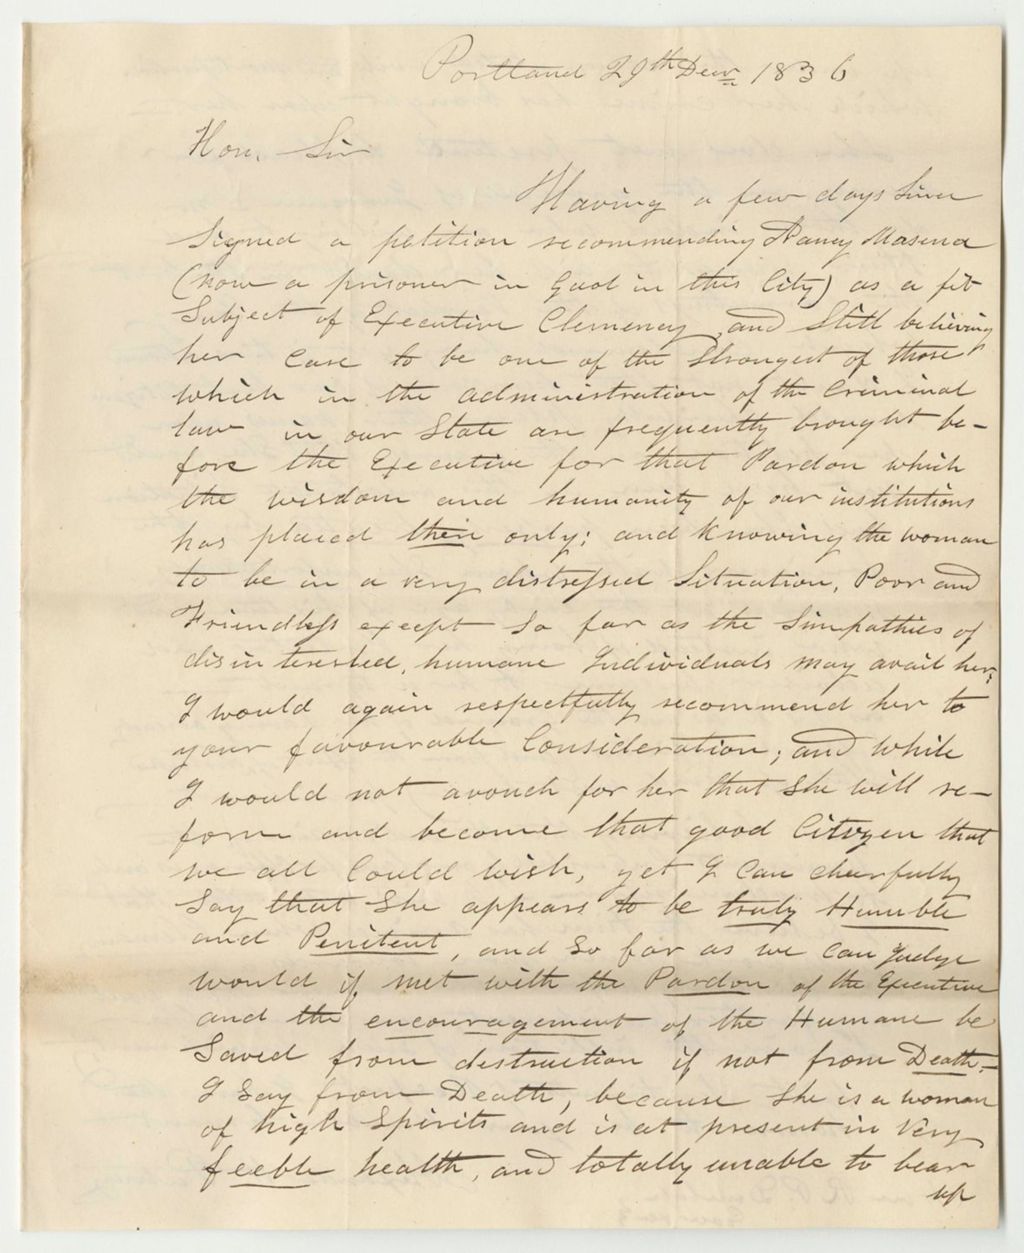 Portland 29th Decr 1836
Hon. Sir
Having a few days since
signed a petition recommending Nancy Masena
(now a prisoner in Gaol in this City) as a fit
Subject of Executive Clemency, and still believing
her Case to be one of the strongest of those
which in the administration of the Criminal
law in our State are frequently brought be-
fore the Executive for that Pardon which
the wisdom and humanity of our institutions
has placed there only; and knowing the woman
to be in a very distressed Situation, Poor and
Friendless except so far as the Simpathies of
disinterested, humane Individuals may avail her,
I would again respectfully recommend her to
your favourable Consideration; and while
I would not avouch for her that she will re-
form and become that good Citizen that
we all Could wish, yet I can cheerfully
Say that She appears to be truly Humble
and Penitent, and so far as we can judge
would if met with the Pardon of the Executive
and the encouragement of the Humane be
Saved from destruction if not from Death.
I say from Death, because she is a woman
of high Spirits and is at present in very
feeble health, and totally unable to bear
up